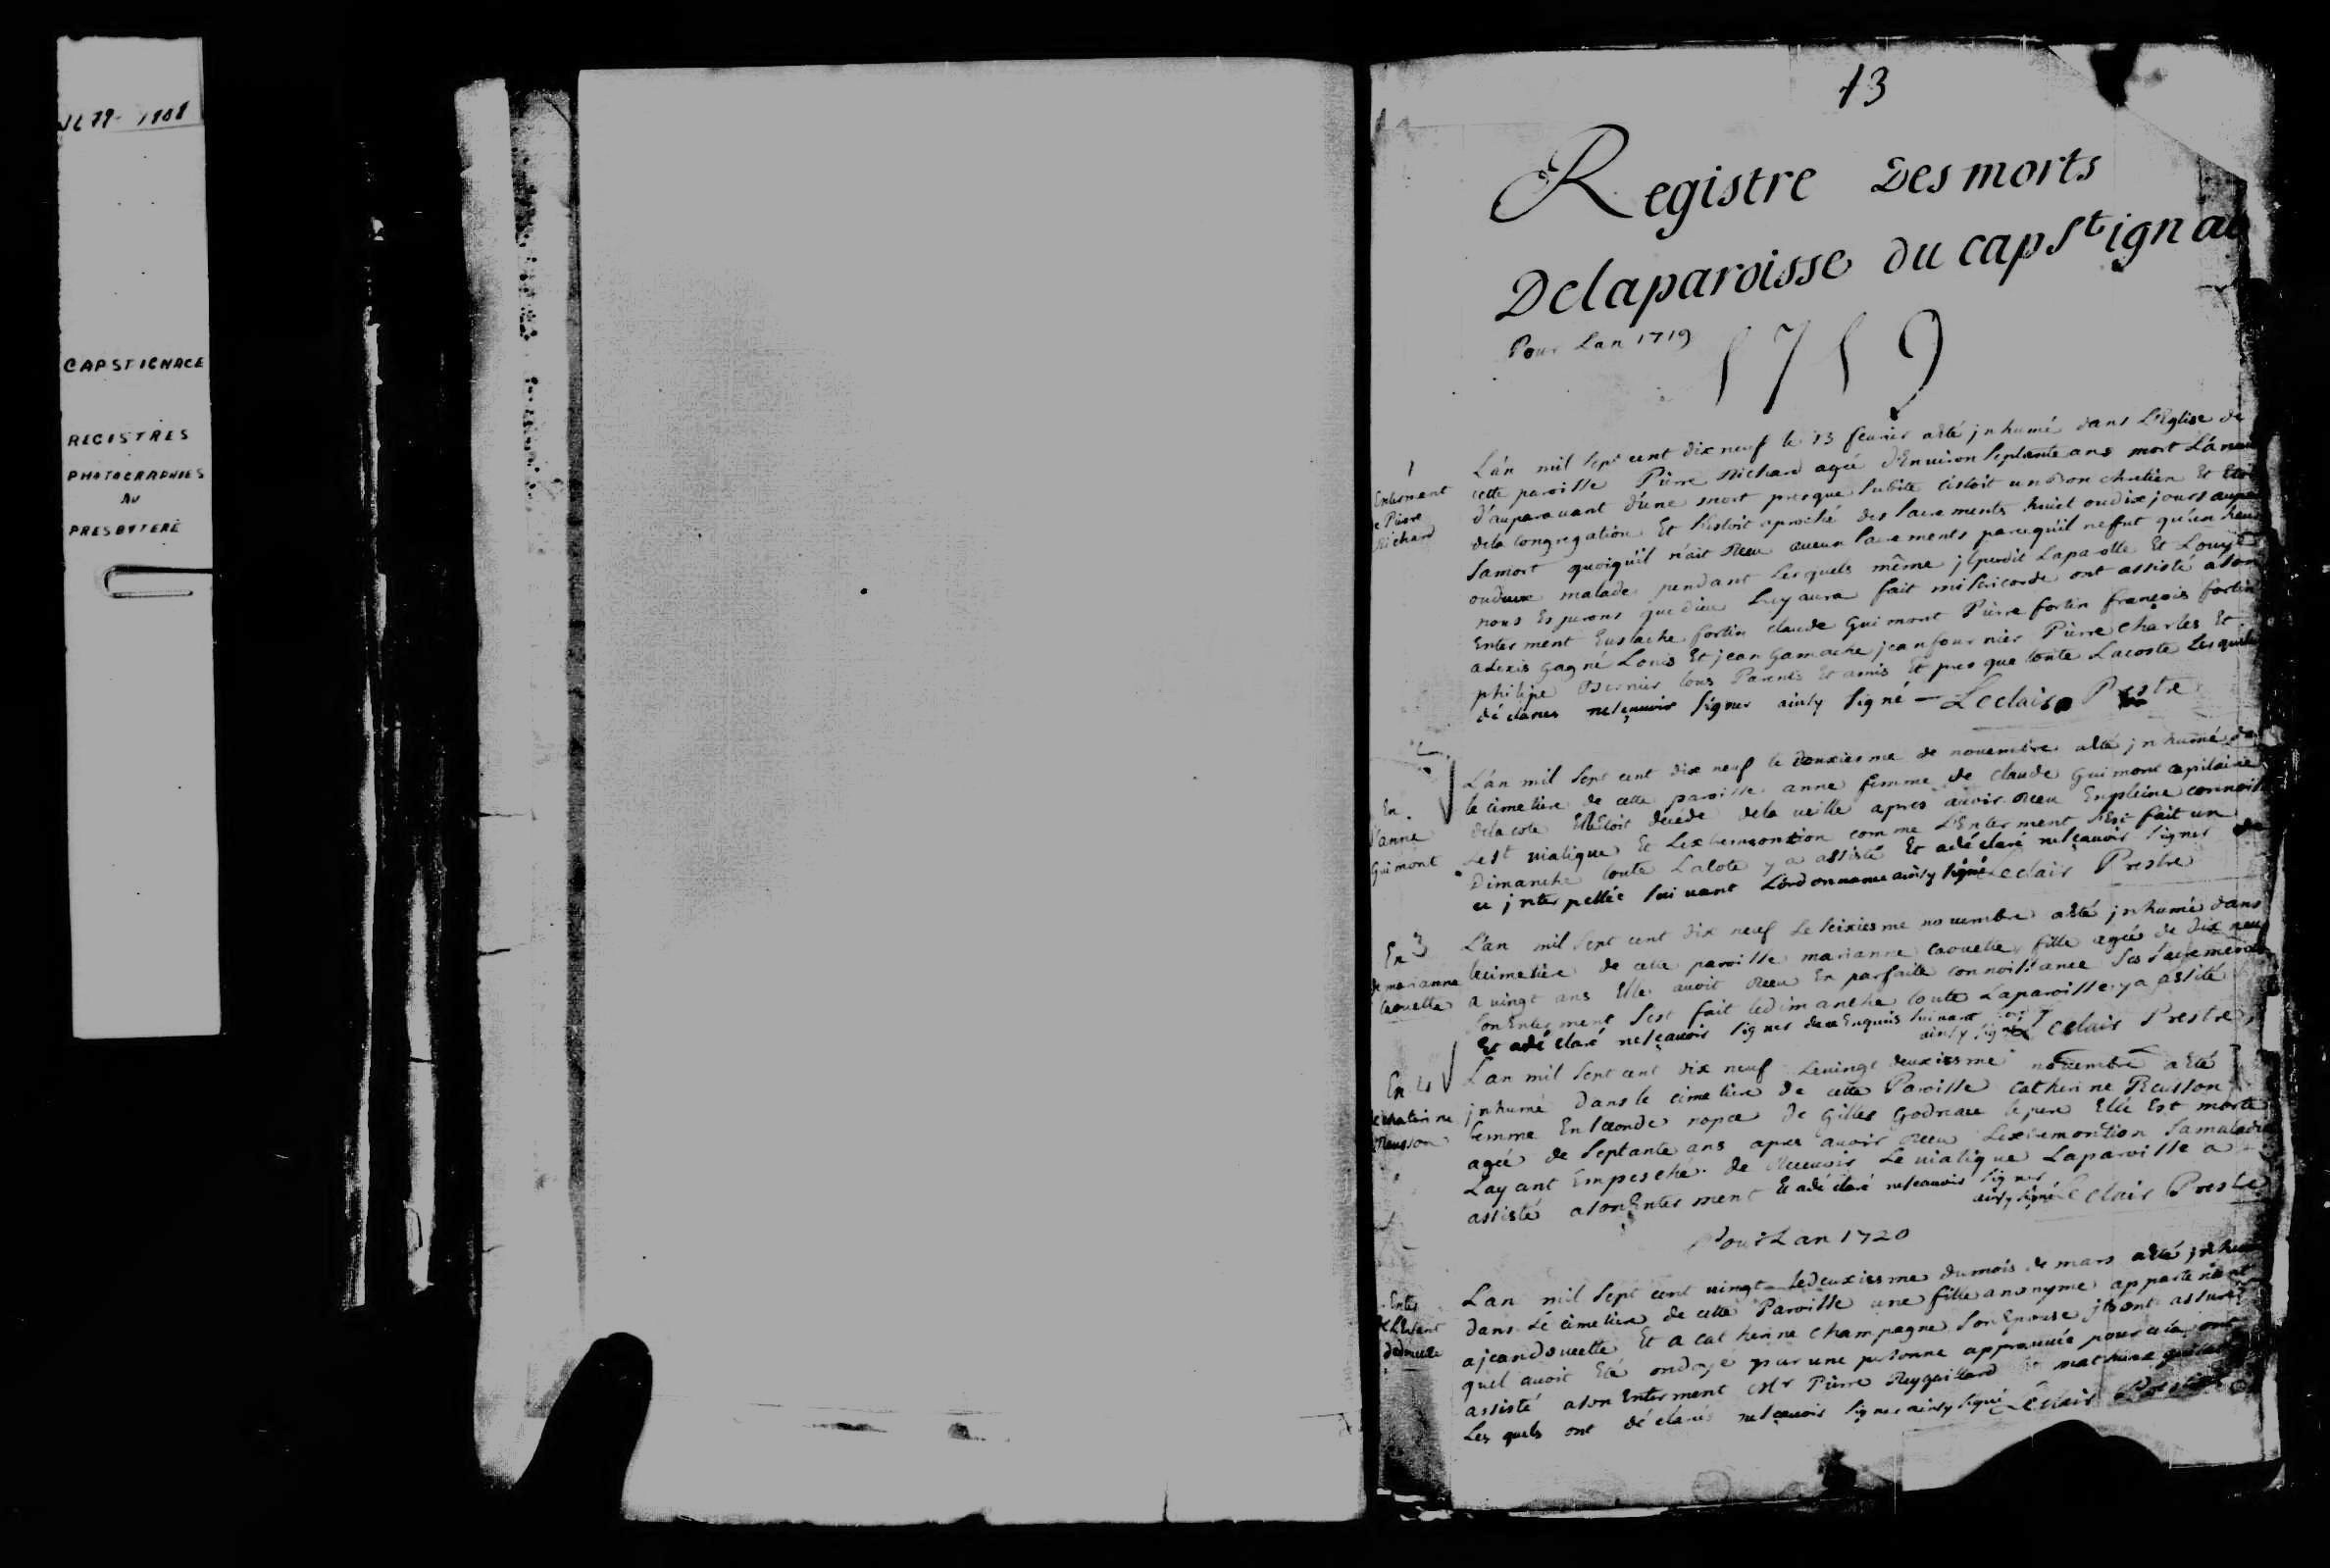 1679-1908
CAP ST IGNACE
REGISTRES
PHOTOGRAPHIES
AU
PRESBYTERE
13
Registre Des morts
De laparoisse du cap St ignac
Pour Lan 1719
1719
1
Enterment
e Pierre
Richard
L'an mil sept cent dix neuf le 13 feurier aété jnhumé dans L'Eglise de
cette paroisse Pierre Richard agée d'Enuiron septante ans mort La
d'auparauant d'une mort presque subite cestoit un Bon chretien Et Etoit
dela congregation Et s'estoit aproché des sacrements huict ou dix jours
samort quoiqu'il n'ait Receu aucun sacrements parcequ'il ne fut qu'un
ou deux malade pendant lesquels même jl perdit Laparolle Et
nous Esperons que dieu Luy aura fait misericorde ont assisté ason
Enterment Eustache fortin claude Guimont Pierre fortin françois fortin
alexis gagné Louis Et jean Gamache jean fournier Pierre charles Et
philipe Bernier tous Parents Et amis Et presque toute Lacoste Lesquels
déclarés nesçauoir signer ainsy signé - Leclair Prestre
En
d'anne
Guimont
L'an mil sept cent dix neuf le de nouembre aété jnhumé
le cimetiere de cette paroisse anne femme de claude Guimont capitaine
dela cote Elle Etoit décédé dela ueille apres auoir Receu En pleine
Le st uiatique Et Lextremontion comme L'Enterment s'Est fait un
Dimanche toute Lacote y a assisté Et adéclaré nesçauoir signer
ce jnterpellée suiuant L'ordonnance ainsy signé Leclair Prestre
En 3
de marianne
caouette
L'an mil sept cent dix neuf le seixiesme nouembre aété jnhumé dans
lecimetiere de cette paroisse marianne caouette fille agée de dix neuf
a uingt ans Elle auoit Receu En parfaite connoissance ses sacrements
son Enterment s'est fait ledimanche toute Laparoisse y a assité
Et adéclaré nesçauoir signer Enquis suiuant
ainsy signé Leclair Prestre
En 4
de chaterine
Reusson
Lan mil sept cent dix neuf Leuingt deuxiesme nouembre aété
jnhumé dans le cimetiere de cette Paroisse catherine Reusson
femme En seconde nopce de Gilles Godreau le pere Elle Est morte
agée de septante ans apres auoir Receu Lextremontion samaladie
Layant Empesché de Receuoir Le uiatique Laparoisse a
assisté ason Enterment Et adéclaré nesçauoir signer
ainsy signé Leclair Prestre
Pour Lan 1720
Enter
de L'Enfant
Lan mil sept cent uingt ledeuxiesme dumois de mars aété
dans Le cimetiere de cette Paroisse une fille anonyme appartenant
ajean douelle Et a catherine champagne son Epouse jls ont assuré
quel auoit Eté ondoyé par une personne approuuée pour cela ont
assisté ason Enterment Pierre Reygaillard
Les quels ont déclarés nesçauoir signer ainsy signé Leclair